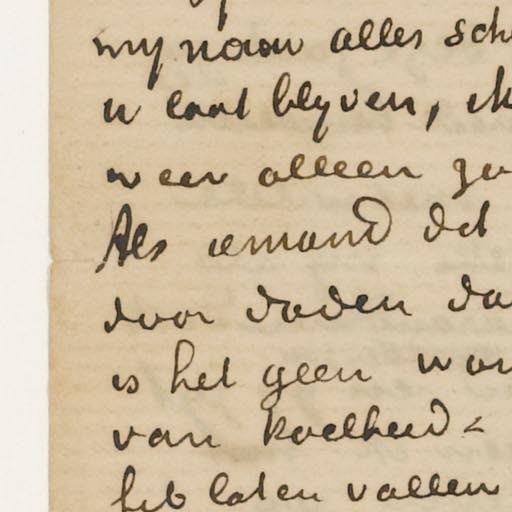 my naam alles sch
u laat blyven, ik
weer alleen ga
Als iemand dit
door daden da
is het geen
van koelheid
heb laten vallen